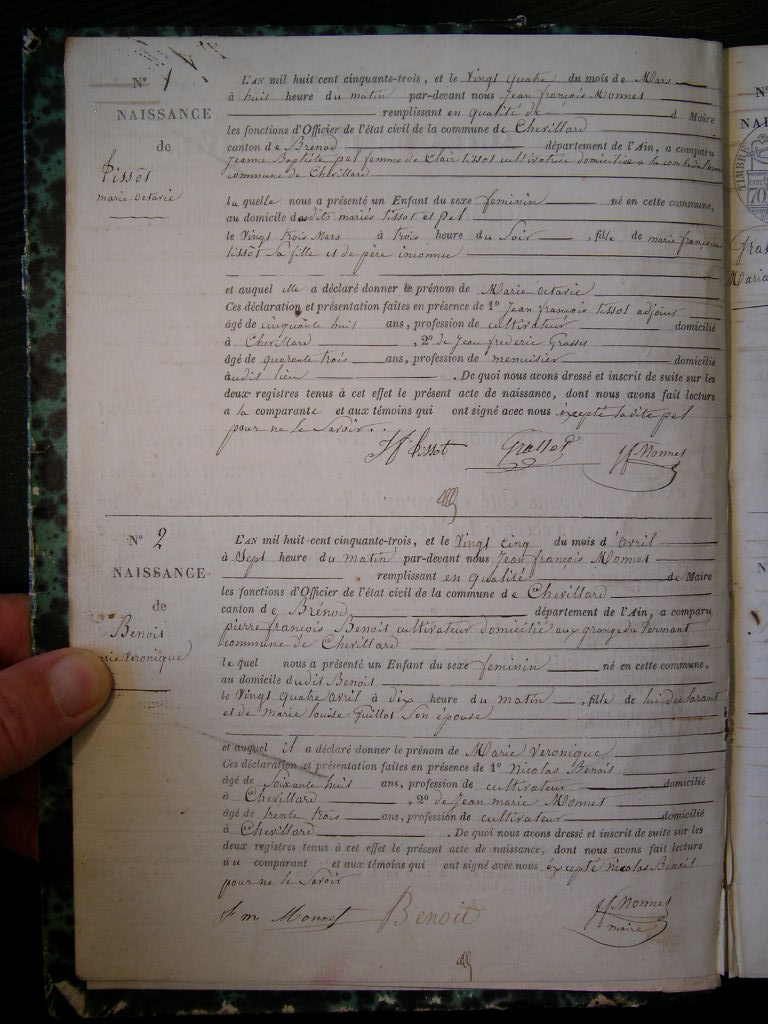 N° 1
NAISSANCE
de
Tissot
marie octavie
L'AN mil huit cent cinquante-trois, et le Vingt quatre du mois de Mars
à huit heure du matin par-devant nous Jean françois Monnet
remplissant en qualité de d Maire
les fonctions d'Officier de l'état civil de la commune de Chevillard
canton de Brenod département de l'Ain, a comparu
jeanne Baptiste pel femme de Clair tissot cultivatrice domiciliée a la combe
commune de Chevillard
la quelle nous a présenté un Enfant du sexe feminin né en cette commune,
au domicile desdits mariés tissot et pel
le Vingt trois Mars à trois heure du Soir, fille de marie françoise
tissot sa fille et de père inconnu
et auquel elle a déclaré donner le prénom de Marie octavie
Ces déclaration et présentation faites en présence de 1° Jean françois tissot adjoint
âgé de cinquante huit ans, profession de cultivateur domicilié
à Chevillard, 2° de Jean frederic Grasset
âgé de quarante trois ans, profession de menuisier domicilié
audit lieu. De quoi nous avons dressé et inscrit de suite sur les
deux registres tenus à cet effet le présent acte de naissance, dont nous avons fait lecture
a la comparante et aux témoins qui ont signé avec nous éxcepté ladite pel
pour ne le Savoir.
Jf tissot Grasset jf Monnet
N° 2
NAISSANCE
de
Benoit
marie Veronique
L'AN mil huit-cent cinquante-trois, et le Vingt cinq du mois d'avril
à Sept heure du matin par-devant nous Jean françois Monnet
remplissant en qualité de Maire
les fonctions d'Officier de l'état civil de la commune de Chevillard
canton de Brénod département de l'Ain, a comparu
pierre françois Benoit cultivateur domicilié aux grange du
commune de Chevillard
le quel nous a présenté un Enfant du sexe feminin né en cette commune,
au domicile dudit Benoit
le Vingt quatre avril à dix heure du matin, fille de lui déclarant
et de marie louise Guillot Son épouse
et auquel il a déclaré donner le prénom de Marie Veronique
Ces déclaration et présentation faites en présence de 1° Nicolas Benoit
âgé de Soixante huit ans, profession de cultivateur domicilié
à Chevillard, 2° de Jean marie Monnet
âgé de trente trois ans, profession de cultivateur domicilié
à Chevillard. De quoi nous avons dressé et inscrit de suite sur les
deux registres tenus à cet effet le présent acte de naissance, dont nous avons fait lecture
au comparant et aux témoins qui ont signé avec nous éxcepté nicolas Benoit
pour ne le Savoir
j m Monnet Benoit jf Monnet
maire
N°
NAI
TIMBRE
70
Gra
Maria